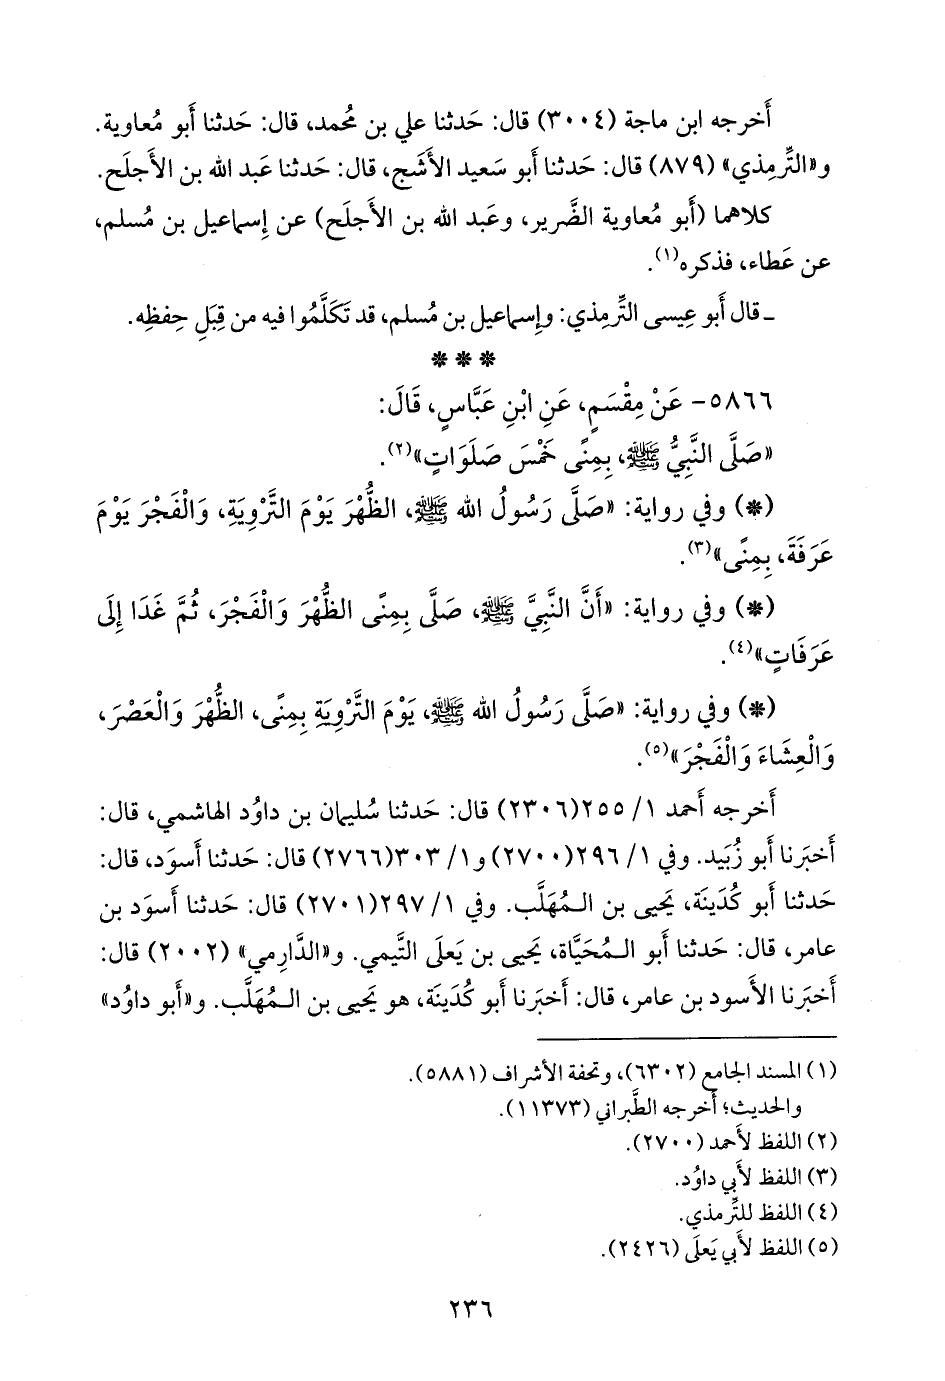 أَخرجه ابن ماجة (٣٠٠٤) قال: حَدثنا علي بن مُحمد، قال: حَدثنا أَبو مُعاوية.
و«التِّرمِذي» (٨٧٩) قال: حَدثنا أَبو سَعيد الأَشَج، قال: حَدثنا عَبد الله بن الأَجلَح.
كلاهما (أَبو مُعاوية الضَّرير، وعَبد الله بن الأَجلَح) عن إِسماعيل بن مُسلم،
عن عَطاء، فذكره(١).
ـ قال أَبو عِيسى التِّرمِذي: وإِسماعيل بن مُسلم، قد تَكَلَّمُوا فيه من قِبَلِ حِفظِه.
* * *
٥٨٦٦- عَنْ مِقْسَمٍ، عَنِ ابْنِ عَبَّاسٍ، قَالَ:
«صَلَّى النَّبِيُّ ﷺ، بِمِنًى خَمْسَ صَلَوَاتٍ»(٢).
(*) وفي رواية: «صَلَّى رَسُولُ الله ﷺ، الظُّهْرَ يَوْمَ التَّرْوِيَةِ، وَالْفَجْرَ يَوْمَ
عَرَفَةَ، بِمِنًى»(٣).
(*) وفي رواية: «أَنَّ النَّبِيَّ ﷺ، صَلَّى بِمِنًى الظُّهْرَ وَالْفَجْرَ، ثُمَّ غَدَا إِلَى
عَرَفَاتٍ»(٤).
(*) وفي رواية: «صَلَّى رَسُولُ الله ﷺ، يَوْمَ التَّرْوِيَةِ بِمِنًى، الظُّهْرَ وَالْعَصْرَ،
وَالْعِشَاءَ وَالْفَجْرَ»(٥).
أَخرجه أَحمد ١/ ٢٥٥(٢٣٠٦) قال: حَدثنا سُليمان بن داوُد الهاشمي، قال:
أَخبَرنا أَبو زُبَيد. وفي ١/ ٢٩٦(٢٧٠٠) و١/ ٣٠٣(٢٧٦٦) قال: حَدثنا أَسوَد، قال:
حَدثنا أَبو كُدَينَة، يَحيى بن الـمُهَلَّب. وفي ١/ ٢٩٧(٢٧٠١) قال: حَدثنا أَسوَد بن
عامر، قال: حَدثنا أَبو الـمُحَيَّاة، يَحيى بن يَعلَى التَّيمي. و«الدَّارِمي» (٢٠٠٢) قال:
أَخبَرنا الأَسود بن عامر، قال: أَخبَرنا أَبو كُدَينَة، هو يَحيى بن الـمُهَلَّب. و«أَبو داوُد»
(١) المسند الجامع (٦٣٠٢)، وتحفة الأشراف (٥٨٨١).
والحديث؛ أَخرجه الطَّبراني (١١٣٧٣).
(٢) اللفظ لأَحمد (٢٧٠٠).
(٣) اللفظ لأَبي داوُد.
(٤) اللفظ للتِّرمذي.
(٥) اللفظ لأَبي يَعلَى (٢٤٢٦).
٢٣٦